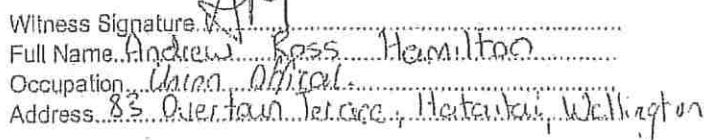 Witness Signature
Full Name Andrew Ross Hamilton
Occupation Union Offical.
Address 83 Overtoun Terrace, Hataitai, Wellington